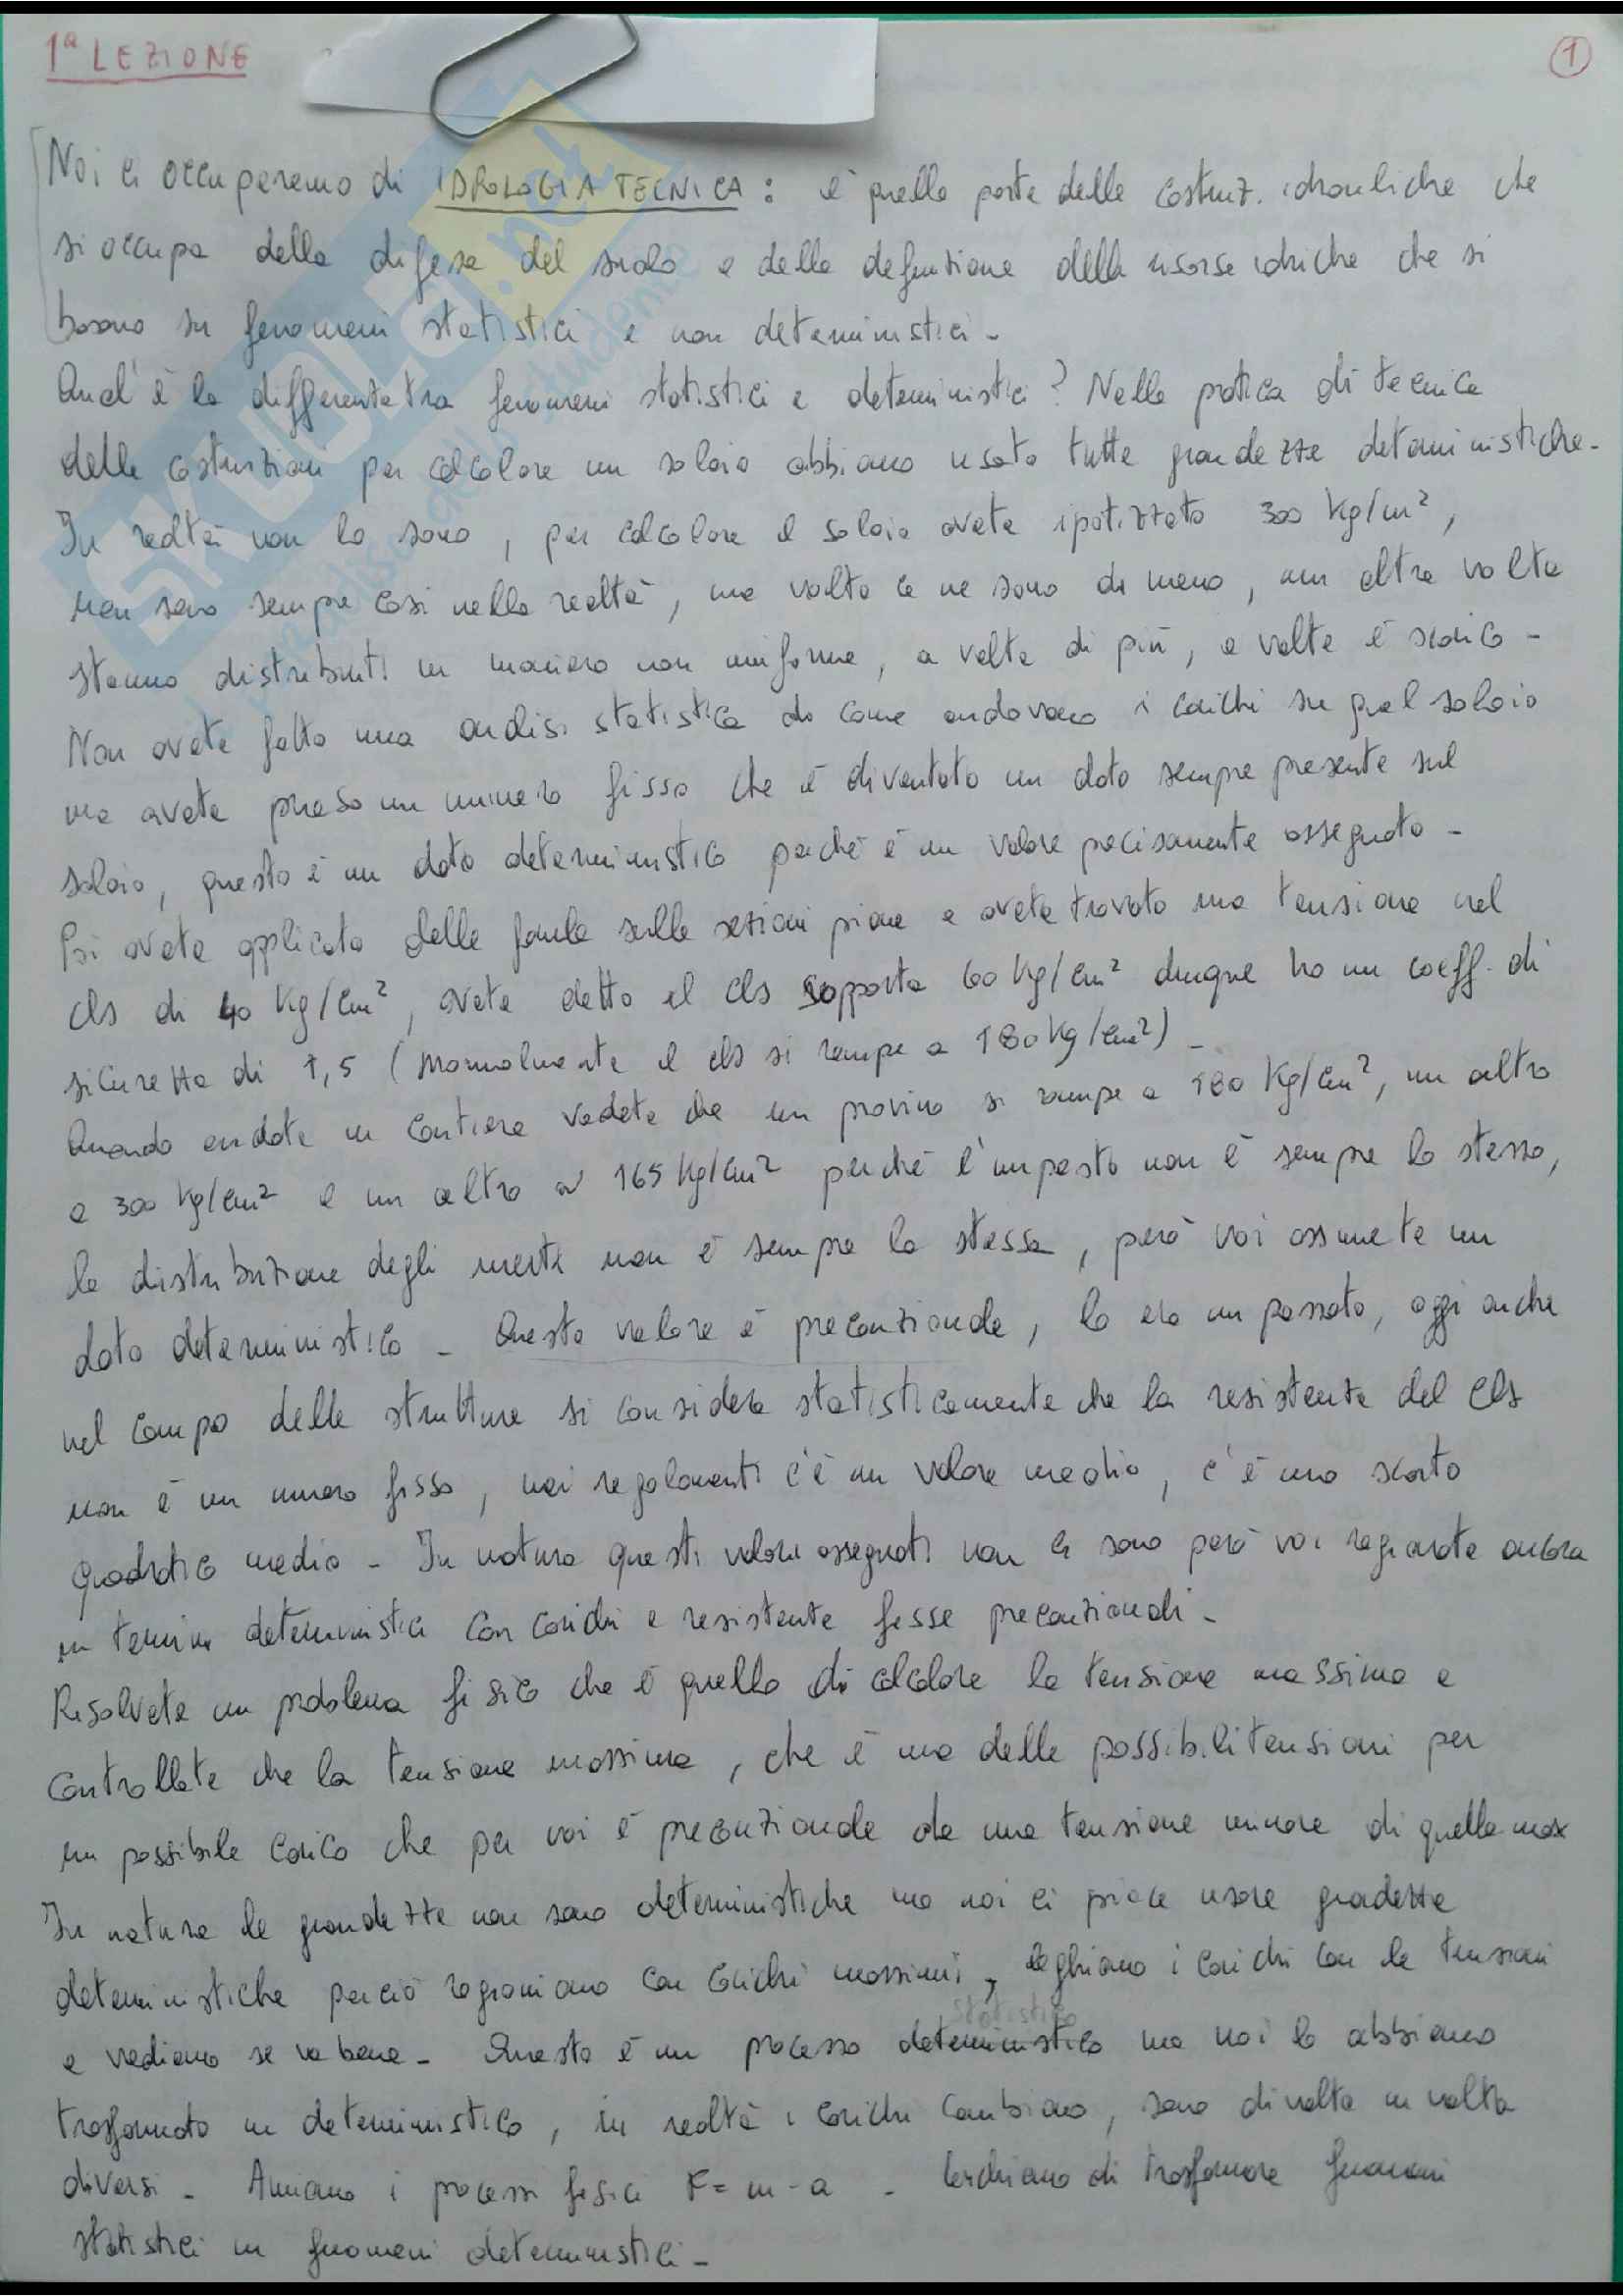 1ª LEZIONE
1
Noi ci occuperemo di IDROLOGIA TECNICA : è quella parte delle costruz. idrauliche che
si occupa della difesa del suolo e della definizione delle risorse idriche che si
basano su fenomeni statistici e non deterministici -
Qual'è la differenza tra fenomeni statistici e deterministici ? Nella pratica di tecnica
delle costruzioni per calcolare un solaio abbiamo usato tutte grandezze deterministiche -
In realtà non lo sono , per calcolare il solaio avete ipotizzato 300 kg/m² ,
non sono sempre così nella realtà , una volta ce ne sono di meno , un altra volta
stanno distribuiti in maniera non uniforme , a volte di più , a volte è scarico -
Non avete fatto una analisi statistica di come andavano i carichi su quel solaio
ma avete preso un numero fisso che è diventato un dato sempre presente sul
solaio , questo è un dato deterministico perchè è un valore precisamente assegnato -
Poi avete applicato delle formule sulle sezioni piane e avete trovato una tensione nel
cls di 40 kg/cm² , avete detto il cls sopporta 60 kg/cm² dunque ho un coeff. di
sicurezza di 1,5 ( normalmente il cls si rompe a 180 kg/cm² ) -
Quando andate in cantiere vedete che un provino si rompe a 180 kg/cm² , un altro
a 300 kg/cm² e un altro a 165 kg/cm² perchè l'impasto non è sempre lo stesso ,
la distribuzione degli inerti non è sempre la stessa , però voi assumete un
dato deterministico - Questo valore è precauzionale , lo era in passato , oggi anche
nel campo delle strutture si considera statisticamente che la resistenza del cls
non è un numero fisso , nei regolamenti c'è un valore medio , c'è uno scarto
quadratico medio - In natura questi valori assegnati non ci sono però voi ragionate ancora
in termini deterministici con carichi e resistenze fisse precauzionali -
Risolvete un problema fisico che è quello di calcolare la tensione massima e
controllate che la tensione massima , che è una delle possibili tensioni per
un possibile carico che per voi è precauzionale da una tensione minore di quella max
In natura le grandezze non sono deterministiche ma noi ci piace usare gradezze
deterministiche perciò ragioniamo con carichi massimi , leghiamo i carichi con le tensioni
statistico
e vediamo se va bene - Questo è un processo deterministico ma noi lo abbiamo
trasformato in deterministico , in realtà i carichi cambiano , sono di volta in volta
diversi - Amiamo i processi fisici F = m · a - Cerchiamo di trasformare fenomeni
statistici in fenomeni deterministici -
SKUOLA.net